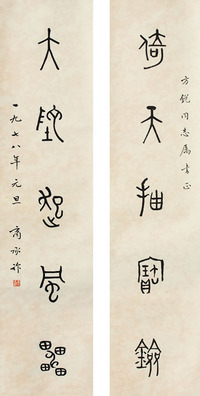 倚天抽寶鐱
方銳同志属书正
大地起風雷
一九七八年元旦 商承祚